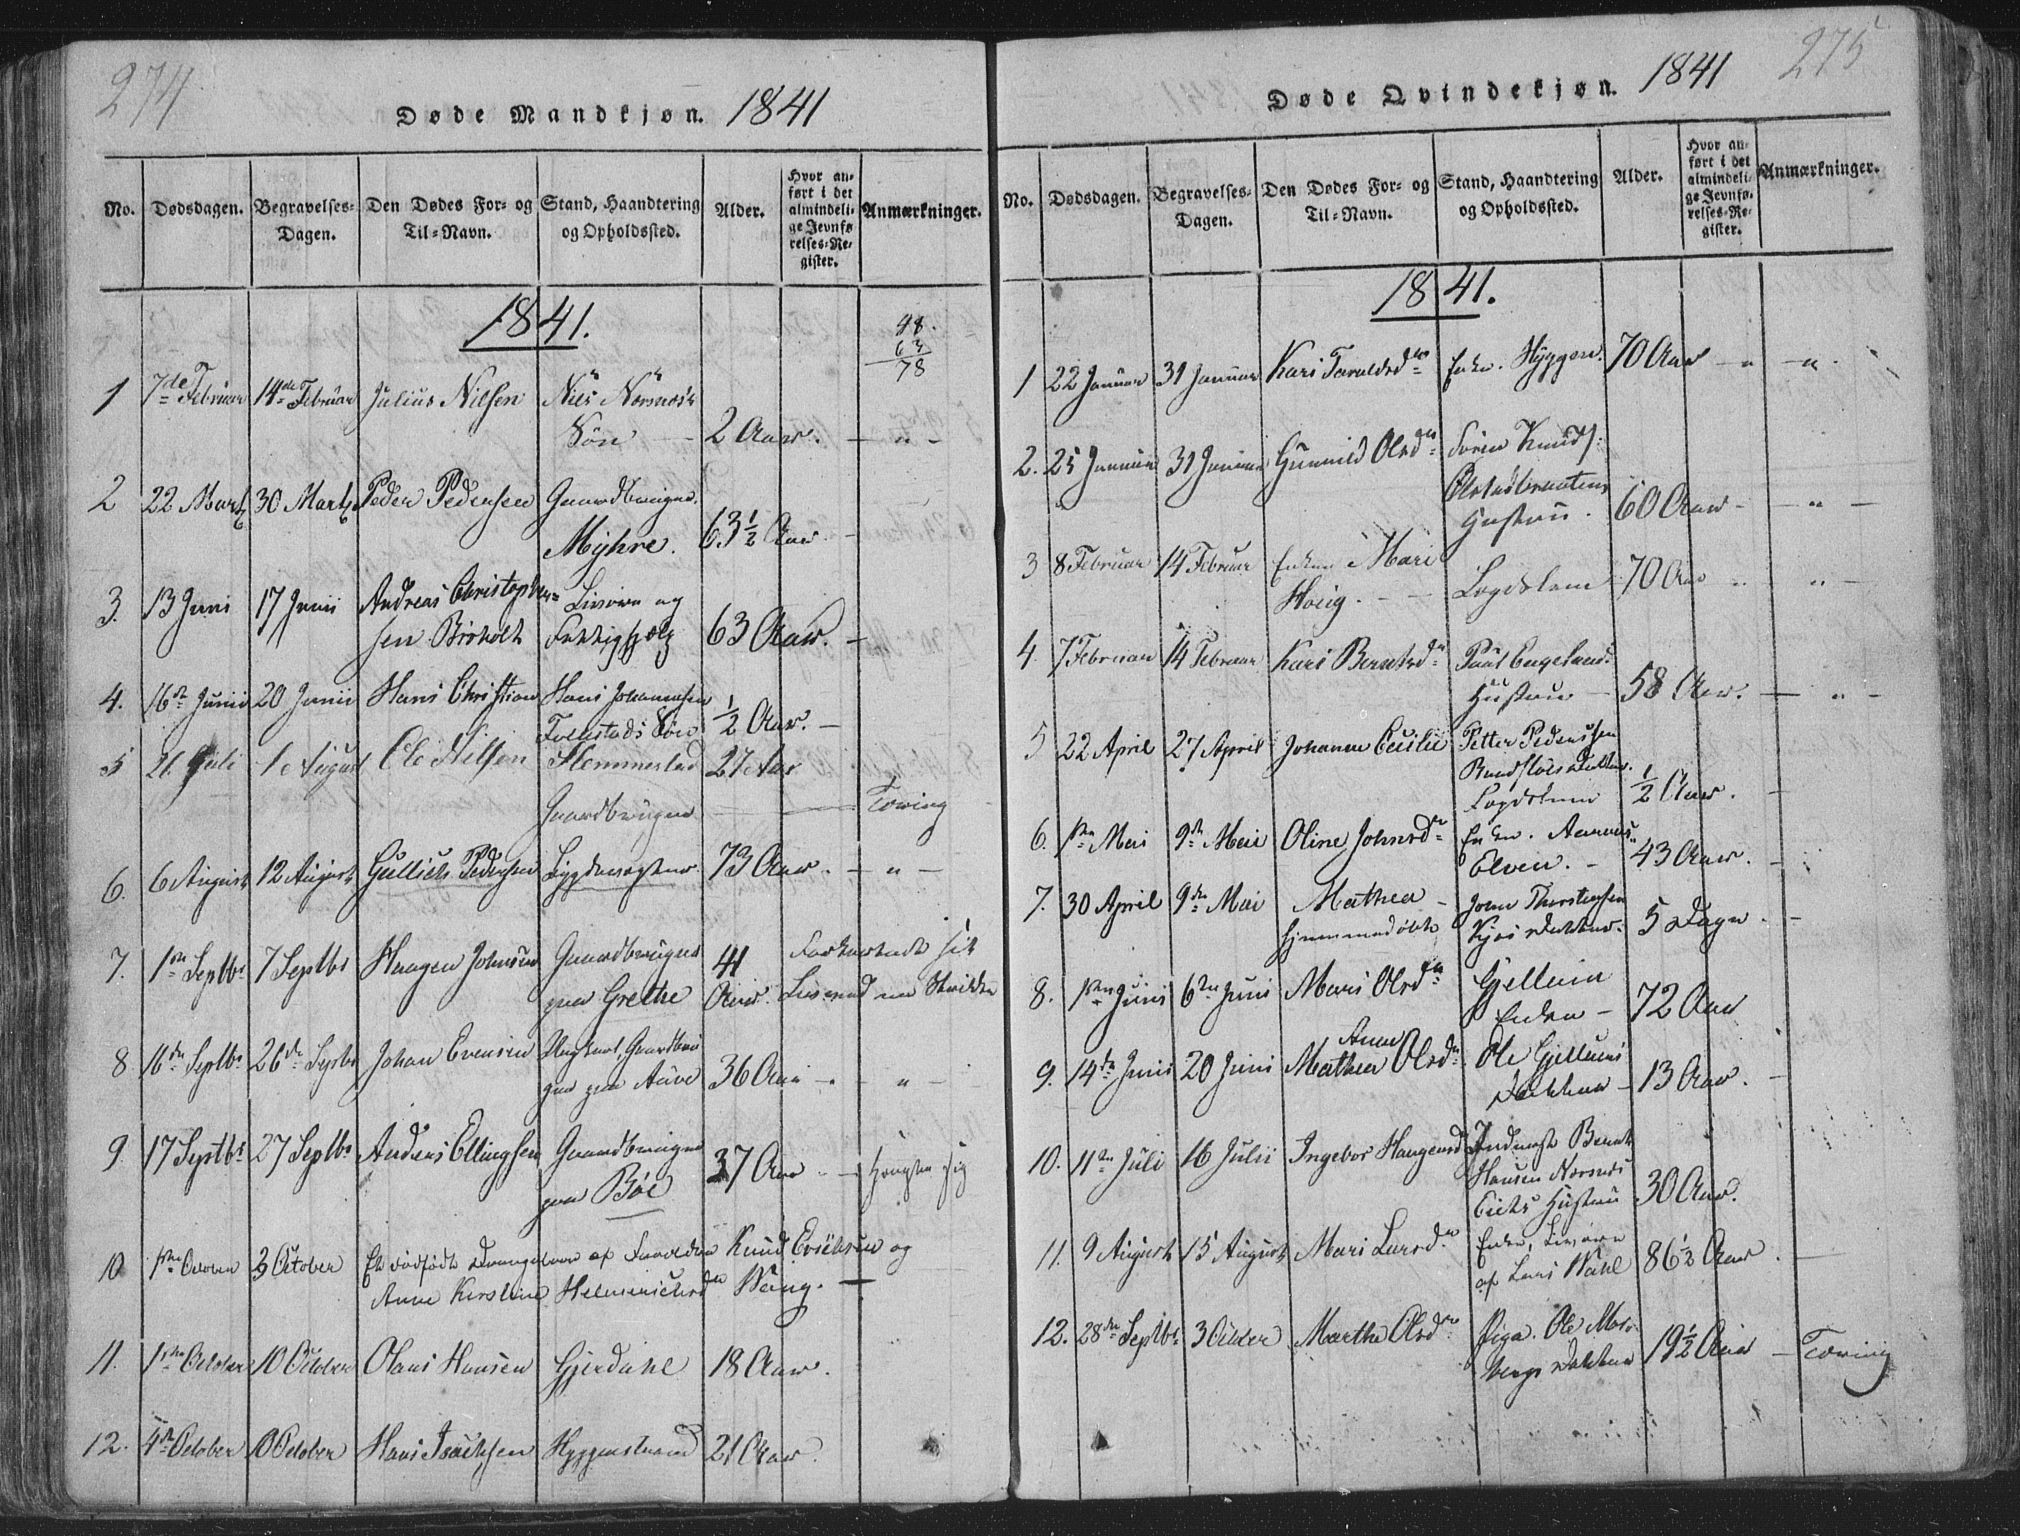 274
Døde Mandkjøn. 1841
No. Dødsdagen. Begravelses-Dagen. Den Dødes For- og Til-Navn. Stand, Haandtering og Opholdssted. Alder. Hvor anført i det almindelige Jevnførelses-Register. Anmærkninger.
1841.
48.
63
78
1 7de Februar 14de Februar Julius Nilsen Niels Norsnæs's
Sön 2 Aar. - " -
2 22 Marts 30 Marts Peder Pedersen Gaardbruger.
Myhre. 63½ Aar. -
3. 13 Juni 17 Junii Andreas Christophersen
sen Birholt Fattigh 63 Aar. -
4. 16de Junii 20 Junii Hans Christian Hans Johannesen
Søn ½ Aar. -
5 21 Juli 1 August Ole Nilsen Hemmestad 27 Aar
Gaardbruger Tæring
6. 6 August 12 August Gullich Pedersen Lygdevogter 73 Aar. - " -
7. 1ste Septbr 7 Septbr Haagen Johnsen Gaardbruger 41
paa Grethe Aar.
8 16de Septbr 26de Septbr Johan Evensen Ungkarl, Gaardbru
ger paa Auve 36 Aar - " -
9. 17 Septbr 27 Septbr Anders Ellingsen Gaardbruger
paa Böe 37 Aar - Hængte sig
10 1ste October 3 October Et dødfødt Drengebarn af Forældre Knud Erichsen og
Anne Kirstine Helmerichsdr Wæing. -
11. 1ste October 10 October Olaus Hansen Gjerdahl 18 Aar.
12. 4de October 10 October Hans Isachsen Hyggenstrand 21 Aar.
275
Døde Qvindekjøn. 1841
No. Dødsdagen. Begravelses-Dagen. Den Dødes For- og Til-Navn. Stand, Haandtering og Opholdssted. Alder. Hvor anført i det almindelige Jevnførelses-Register. Anmærkninger.
1841.
1 22 Januar 31 Januar Kari Taraldsdr Enke. Hyggen. 70 Aar " "
2. 25 Januar 31 Januar Gunnild Olsdr Søren Knuds:
Hustru. 60 Aar - - " -
3 8 Februar 14 Februar Enken Mari
Houg. - - Logdslem 70 Aar " " -
4. 7 Februar 14 Februar Kari Berntsdr Paul Engelunds
Hustrue - 58 Aar. - " -
5 22 April 27 April Johanne Cecilie Petter Pedersen
Datter.
Logdslem ½ Aar. -
6. 1ste Mai 9de Mai Oline Johnsdr Enke. Aamus
Elven. - 43 Aar. -
7. 30 April 9de Mai Mathea - Joen Thorstensen
hjemmedöbt Kjøs Datter. 5 Dage. -
8. 1ste Juni 6te Juni Mari Olsdr Gjellum
Enke - 72 Aar
Anne
9. 14de Juni 20 Juni Mathea Olsdr Ole Gjellums
Datter - 13 Aar. -
10. 11te Juli 16 Julii Ingebor Haagensdr Inderst Bernt
Hansen Norsnæs
Eiets Hustru 30 Aar.
11. 9 August 15 August Mari Larsdr Enke, Livøre
af Lars Wahl 86½ Aar. -
12. 28de Septbr 3 October Marthe Olsdr Pige. Ole Mor-
bergs Datter 19½ Aar - Tæring